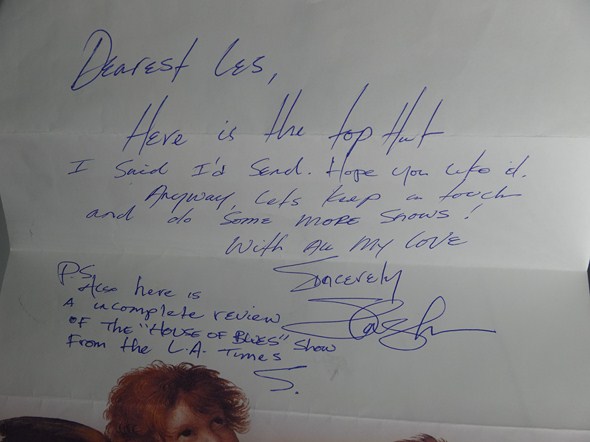 Dearest Les,
Here is the top Hat
I Said I'd Send. Hope you like it.
Anyway, lets keep in touch
and do some more shows!
With All My Love
Sincerely
Slash
P.S.
Also here is
A incomplete review
of The "House of Blues" Show
From the L.A. Times
S.